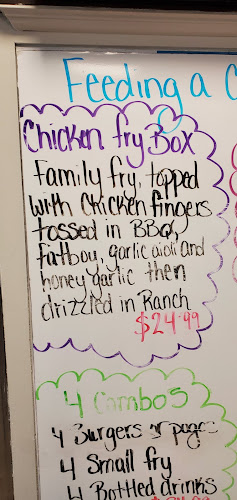 Feeding a C
Chicken fry Box
Family fry, topped
with Chicken fingers
tossed in BBQ,
fatboy, garlic aioli and
honey garlic then
drizzled in Ranch
$24.99
4 Combos
4 Burgers or pogos
4 Small fry
4 Bottled drinks